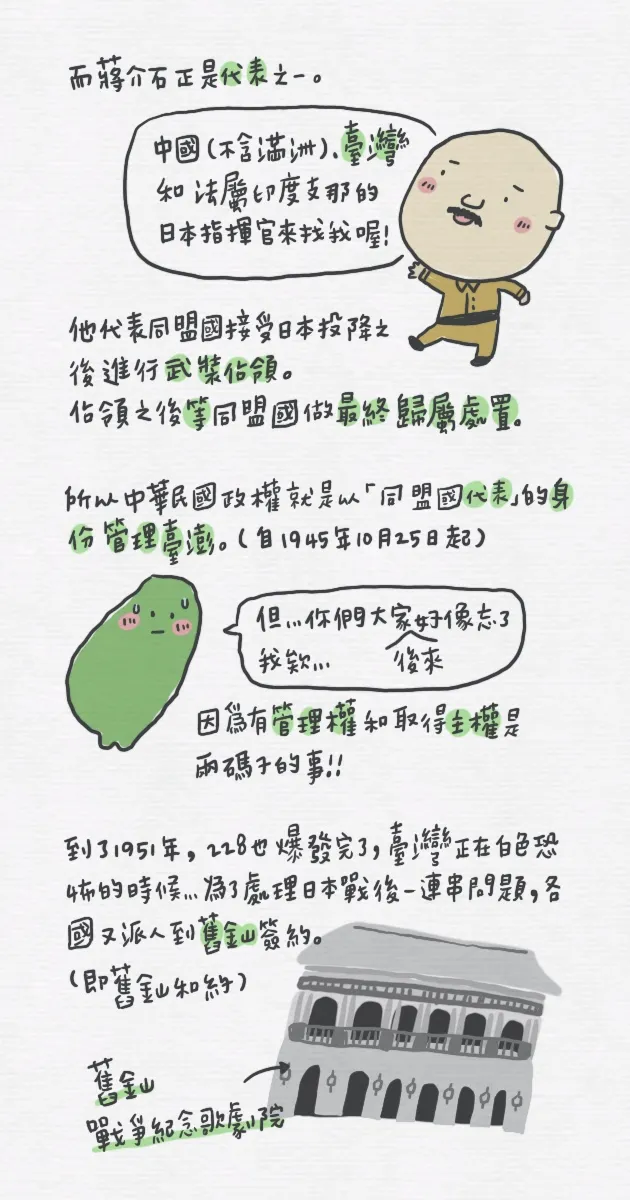 而蔣介石正是代表之一。
中國(不含滿洲)、臺灣
和法屬印度支那的
日本指揮官來找我喔!
他代表同盟國接受日本投降之
後進行武裝佔領。
佔領之後等同盟國做最終歸屬處置。
所以中華民國政權就是以「同盟國代表」的身
份管理臺澎。(自1945年10月25日起)
但...你們大家好像忘了
我欸... 後來
因為有管理權和取得主權是
兩碼子的事!!
到了1951年,228也爆發完了,臺灣正在白色恐
怖的時候...為了處理日本戰後一連串問題,各
國又派人到舊金山簽約。
(即舊金山和約)
舊金山
戰爭紀念歌劇院